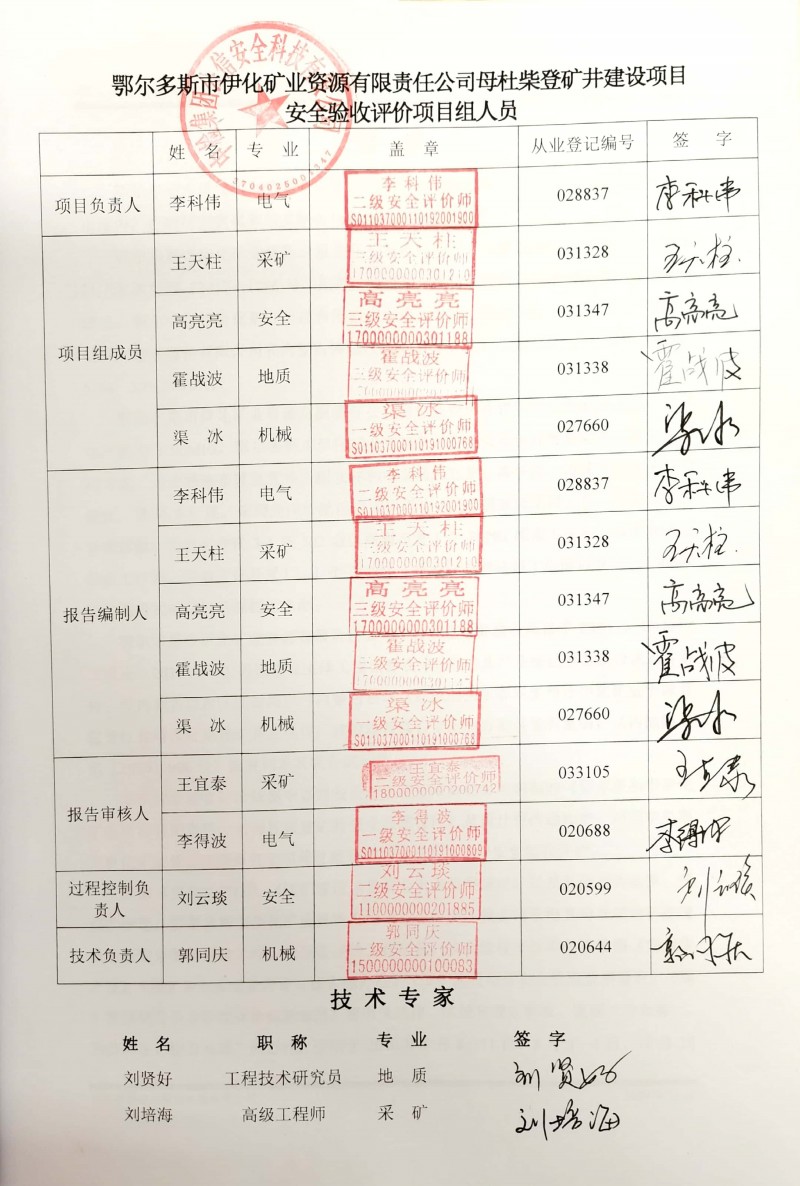 鄂尔多斯市伊化矿业资源有限责任公司母杜柴登矿井建设项目
安全验收评价项目组人员
姓 名 专 业 盖 章 从业登记编号 签 字
项目负责人 李科伟 电气 李科伟 二级安全评价师 S011037000110192001900 028837 李科伟
项目组成员
王天柱 采矿 王天柱 三级安全评价师 1700000000301210 031328 王天柱
高亮亮 安全 高亮亮 三级安全评价师 1700000000301188 031347 高亮亮
霍战波 地质 霍战波 三级安全评价师 031338 霍战波
渠 冰 机械 渠冰 一级安全评价师 S011037000110191000768 027660 渠冰
报告编制人
李科伟 电气 李科伟 二级安全评价师 S011037000110192001900 028837 李科伟
王天柱 采矿 王天柱 三级安全评价师 1700000000301210 031328 王天柱
高亮亮 安全 高亮亮 三级安全评价师 1700000000301188 031347 高亮亮
霍战波 地质 霍战波 三级安全评价师 031338 霍战波
渠 冰 机械 渠冰 一级安全评价师 S011037000110191000768 027660 渠冰
报告审核人
王宜泰 采矿 王宜泰 二级安全评价师 1800000000200742 033105 王宜泰
李得波 电气 李得波 一级安全评价师 S011037000110191000809 020688 李得波
过程控制负
责人
刘云琰 安全 刘云琰 二级安全评价师 1100000000201885 020599 刘云琰
技术负责人 郭同庆 机械 郭同庆 一级安全评价师 1500000000100083 020644 郭同庆
技 术 专 家
姓 名 职 称 专 业 签 字
刘贤好 工程技术研究员 地 质 刘贤好
刘培海 高级工程师 采 矿 刘培海